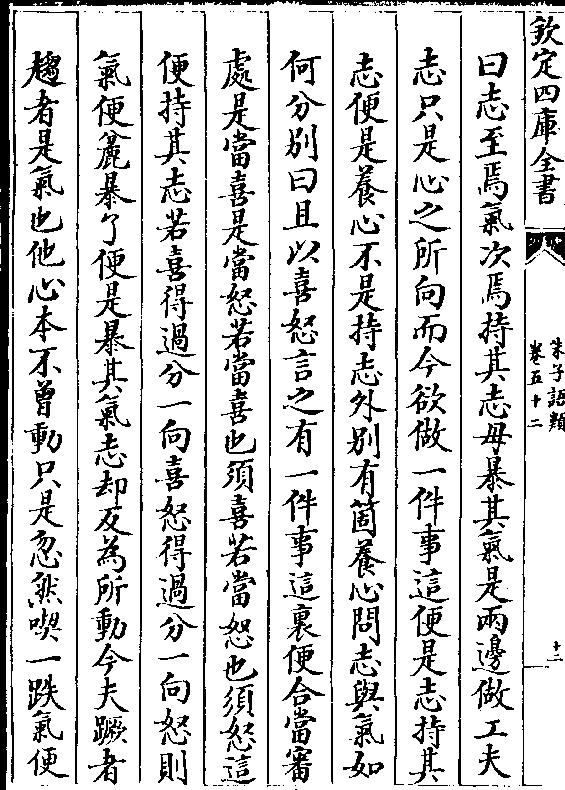 欽定四庫全書
朱子語類
卷五十二
十二
曰志至焉氣次焉持其志毋暴其氣是兩邊做工夫
志只是心之所向而今欲做一件事這便是志持其
志便是養心不是持志外別有箇養心問志與氣如
何分別曰且以喜怒言之有一件事這裏便合當審
處是當喜是當怒若當喜也須喜若當怒也須怒這
便持其志若喜得過分一向喜怒得過分一向怒則
氣便麄暴了便是暴其氣志却反為所動今夫蹶者
趨者是氣也他心本不曾動只是忽然喫一跌氣便